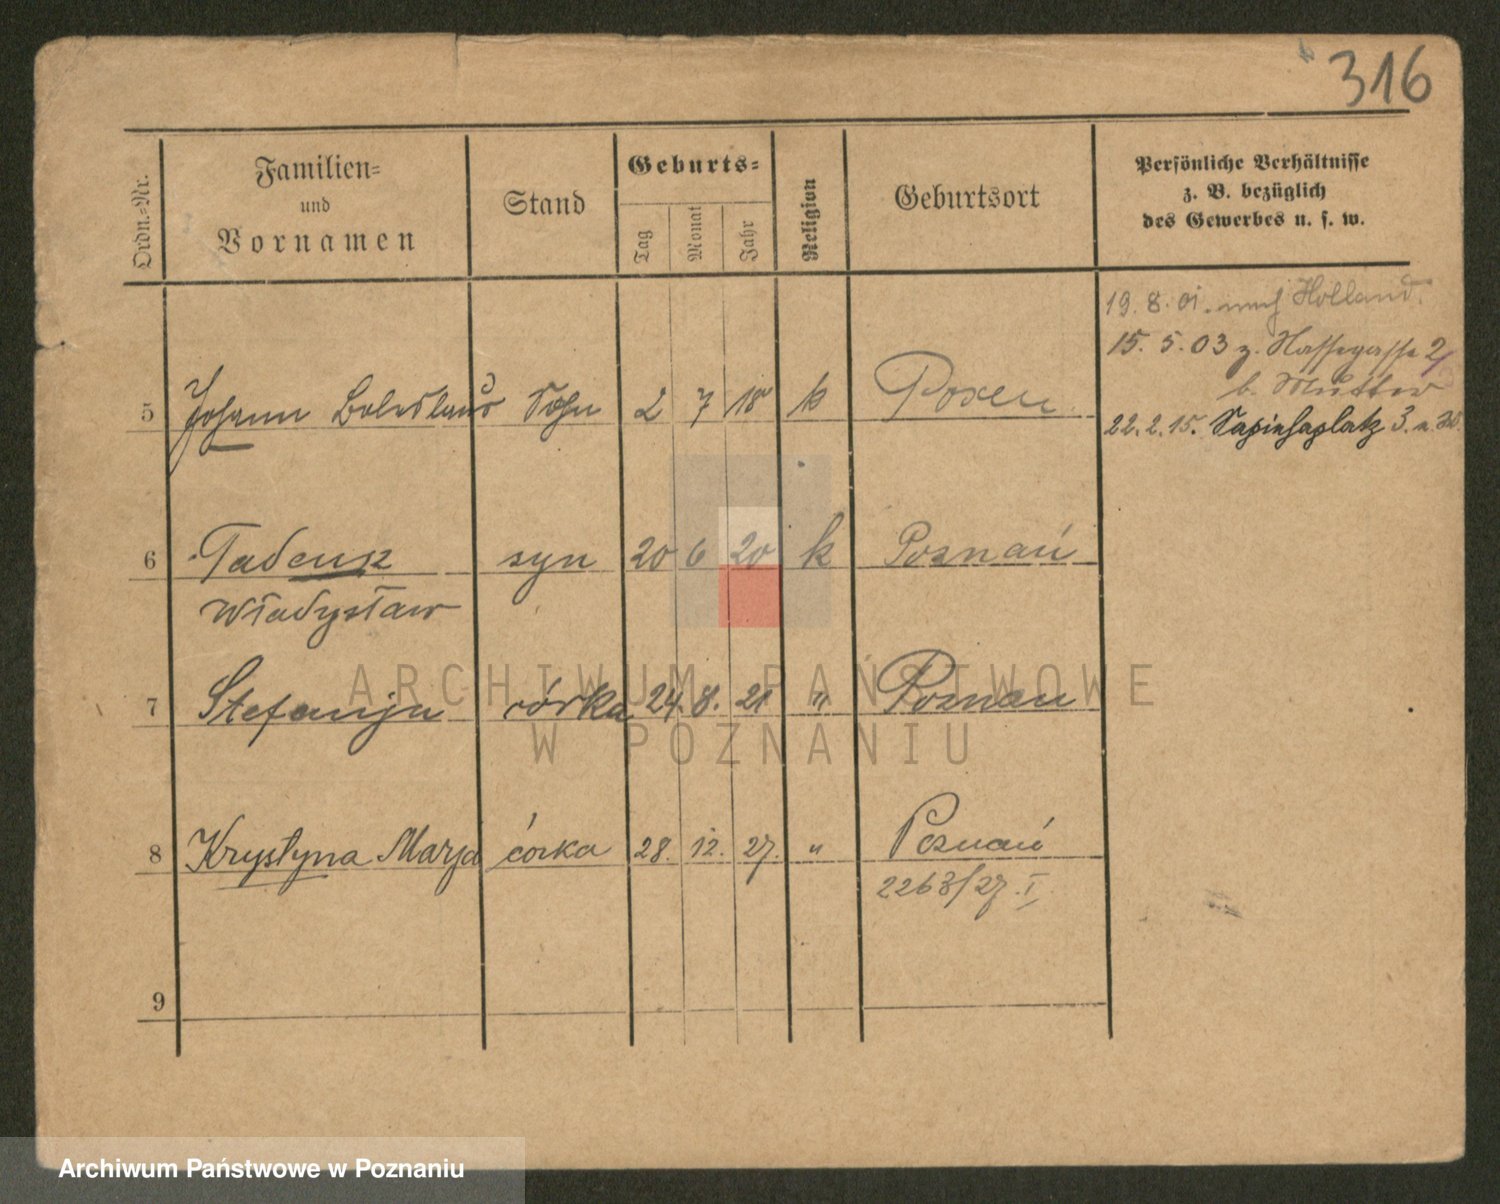 316
Ordn.=Nr.
Familien=
und
Vornamen
Stand
Geburts=
Tag Monat Jahr
Religion
Geburtsort
Persönliche Verhältnisse
z. B. bezüglich
des Gewerbes u. s. w.
19. 8. 01. nach Holland.
15. 5. 03 z. Nassegasse 2
b. Mutter
22. 2. 15. Sapiehaplatz 3.
5 Johann Boleslaus Sohn 2 7 18 k Posen
6 Tadeusz syn 20 6 20 k Poznań
Władysław
7 Stefanja córka 24. 8. 21 " Poznań
8 Krystyna Marja córka 28. 12. 27. " Poznań
2263/27. I.
9
ARCHIWUM PAŃSTWOWE
W POZNANIU
Archiwum Państwowe w Poznaniu